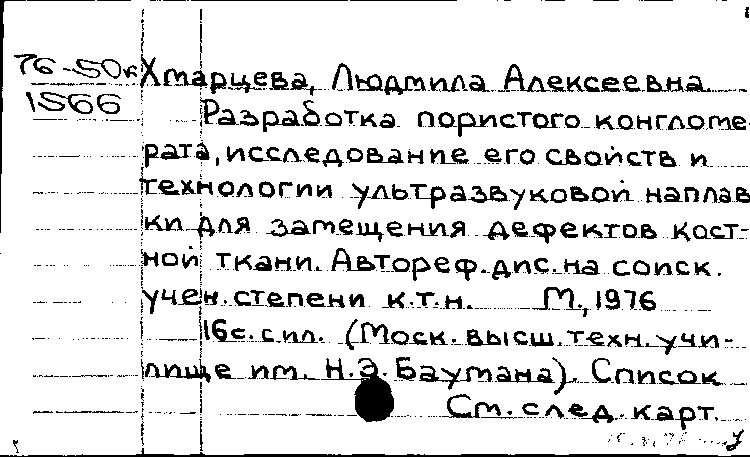 76-50к Хмарцева, Людмила Алексеевна
1566 Разработка пористого конгломе-
рата, исследование его свойств и
технологии ультразвуковой наплав
ки для замещения дефектов кост-
ной ткани. Автореф. дис. на соиск.
учен. степени к.т.н. М., 1976
16с. с ил. (Моск. высш. техн. учи-
лище им. Н.Э. Баумана). Список
См. след. карт.